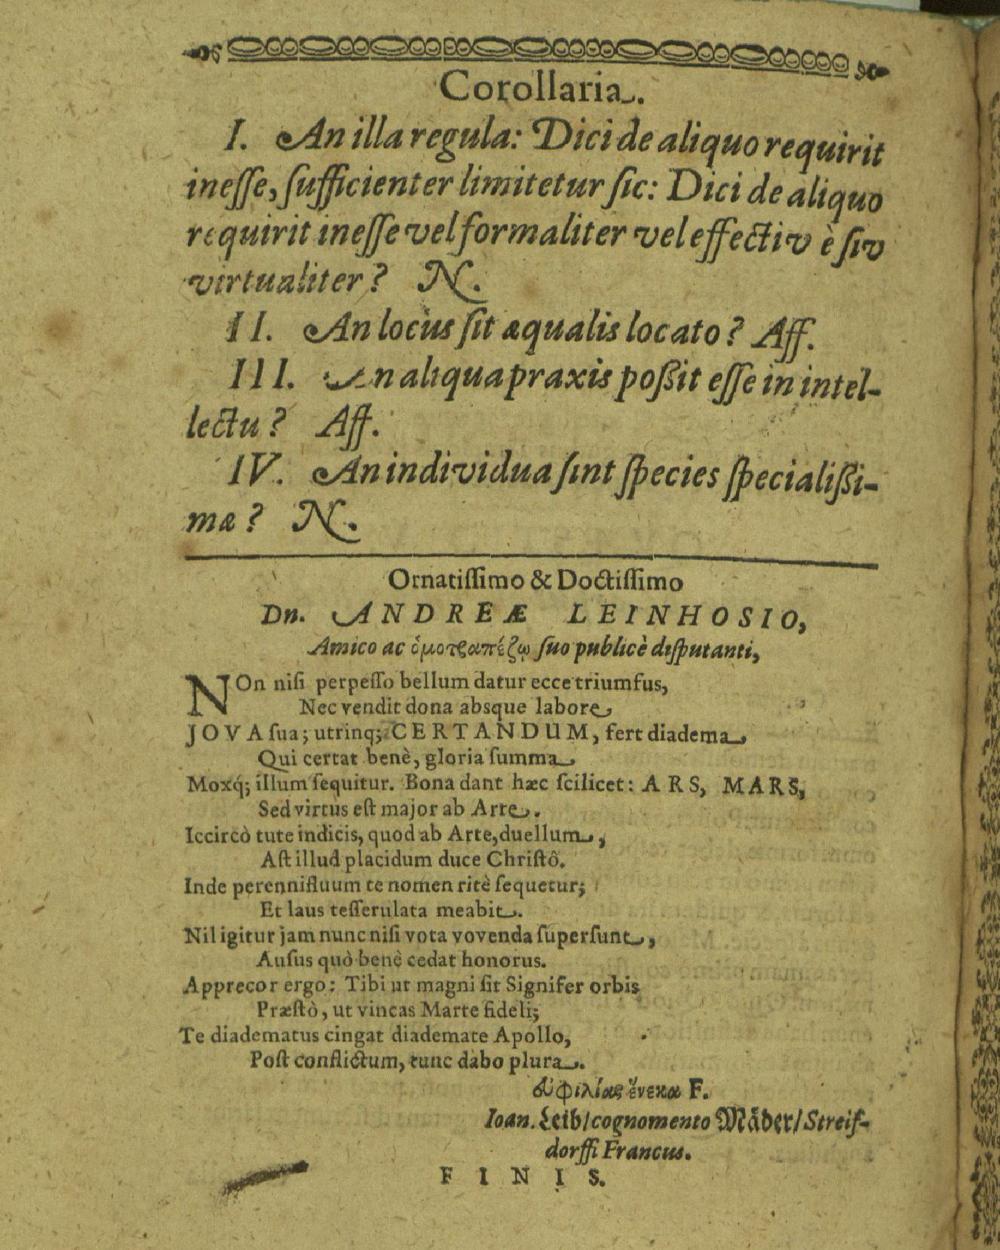 Corollaria.
I. An illa regula: Dici de aliquo requirit
inesse, sufficienter limitetur sic: Dici de aliquo
requirit inesse vel formaliter vel effectivè siv
virtualiter? N.
II. An locus sit æqualis locato? Aff.
III. An aliqua praxis poßit esse in intel-
lectu? Aff.
IV. An individua sint species specialißi-
mæ? N.
Ornatissimo & Doctissimo
Dn. ANDREÆ LEINHOSIO,
Amico ac ὁμοτραπέζῳ suo publicè disputanti,
NOn nisi perpesso bellum datur ecce triumfus,
Nec vendit dona absque labore
JOVA sua; utrinq; CERTANDUM, fert diadema
Qui certat benè, gloria summa.
Moxq́; illum sequitur. Bona dant hæc scilicet: ARS, MARS,
Sed virtus est major ab Arte.
Iccircò tute indicis, quod ab Arte, duellum,
Ast illud placidum duce Christô.
Inde perennifluum te nomen ritè sequetur;
Et laus tesserulata meabit.
Nil igitur jam nunc nisi vota vovenda supersunt,
Ausus quò benè cedat honorus.
Apprecor ergo: Tibi ut magni sit Signifer orbis
Præstò, ut vincas Marte fideli;
Te diadematus cingat diademate Apollo,
Post conflictum, tunc dabo plura.
φιλίας ἕνεκα F.
Ioan. Leib/cognomento Mäder/Streif-
dorffi Francus.
FINIS.